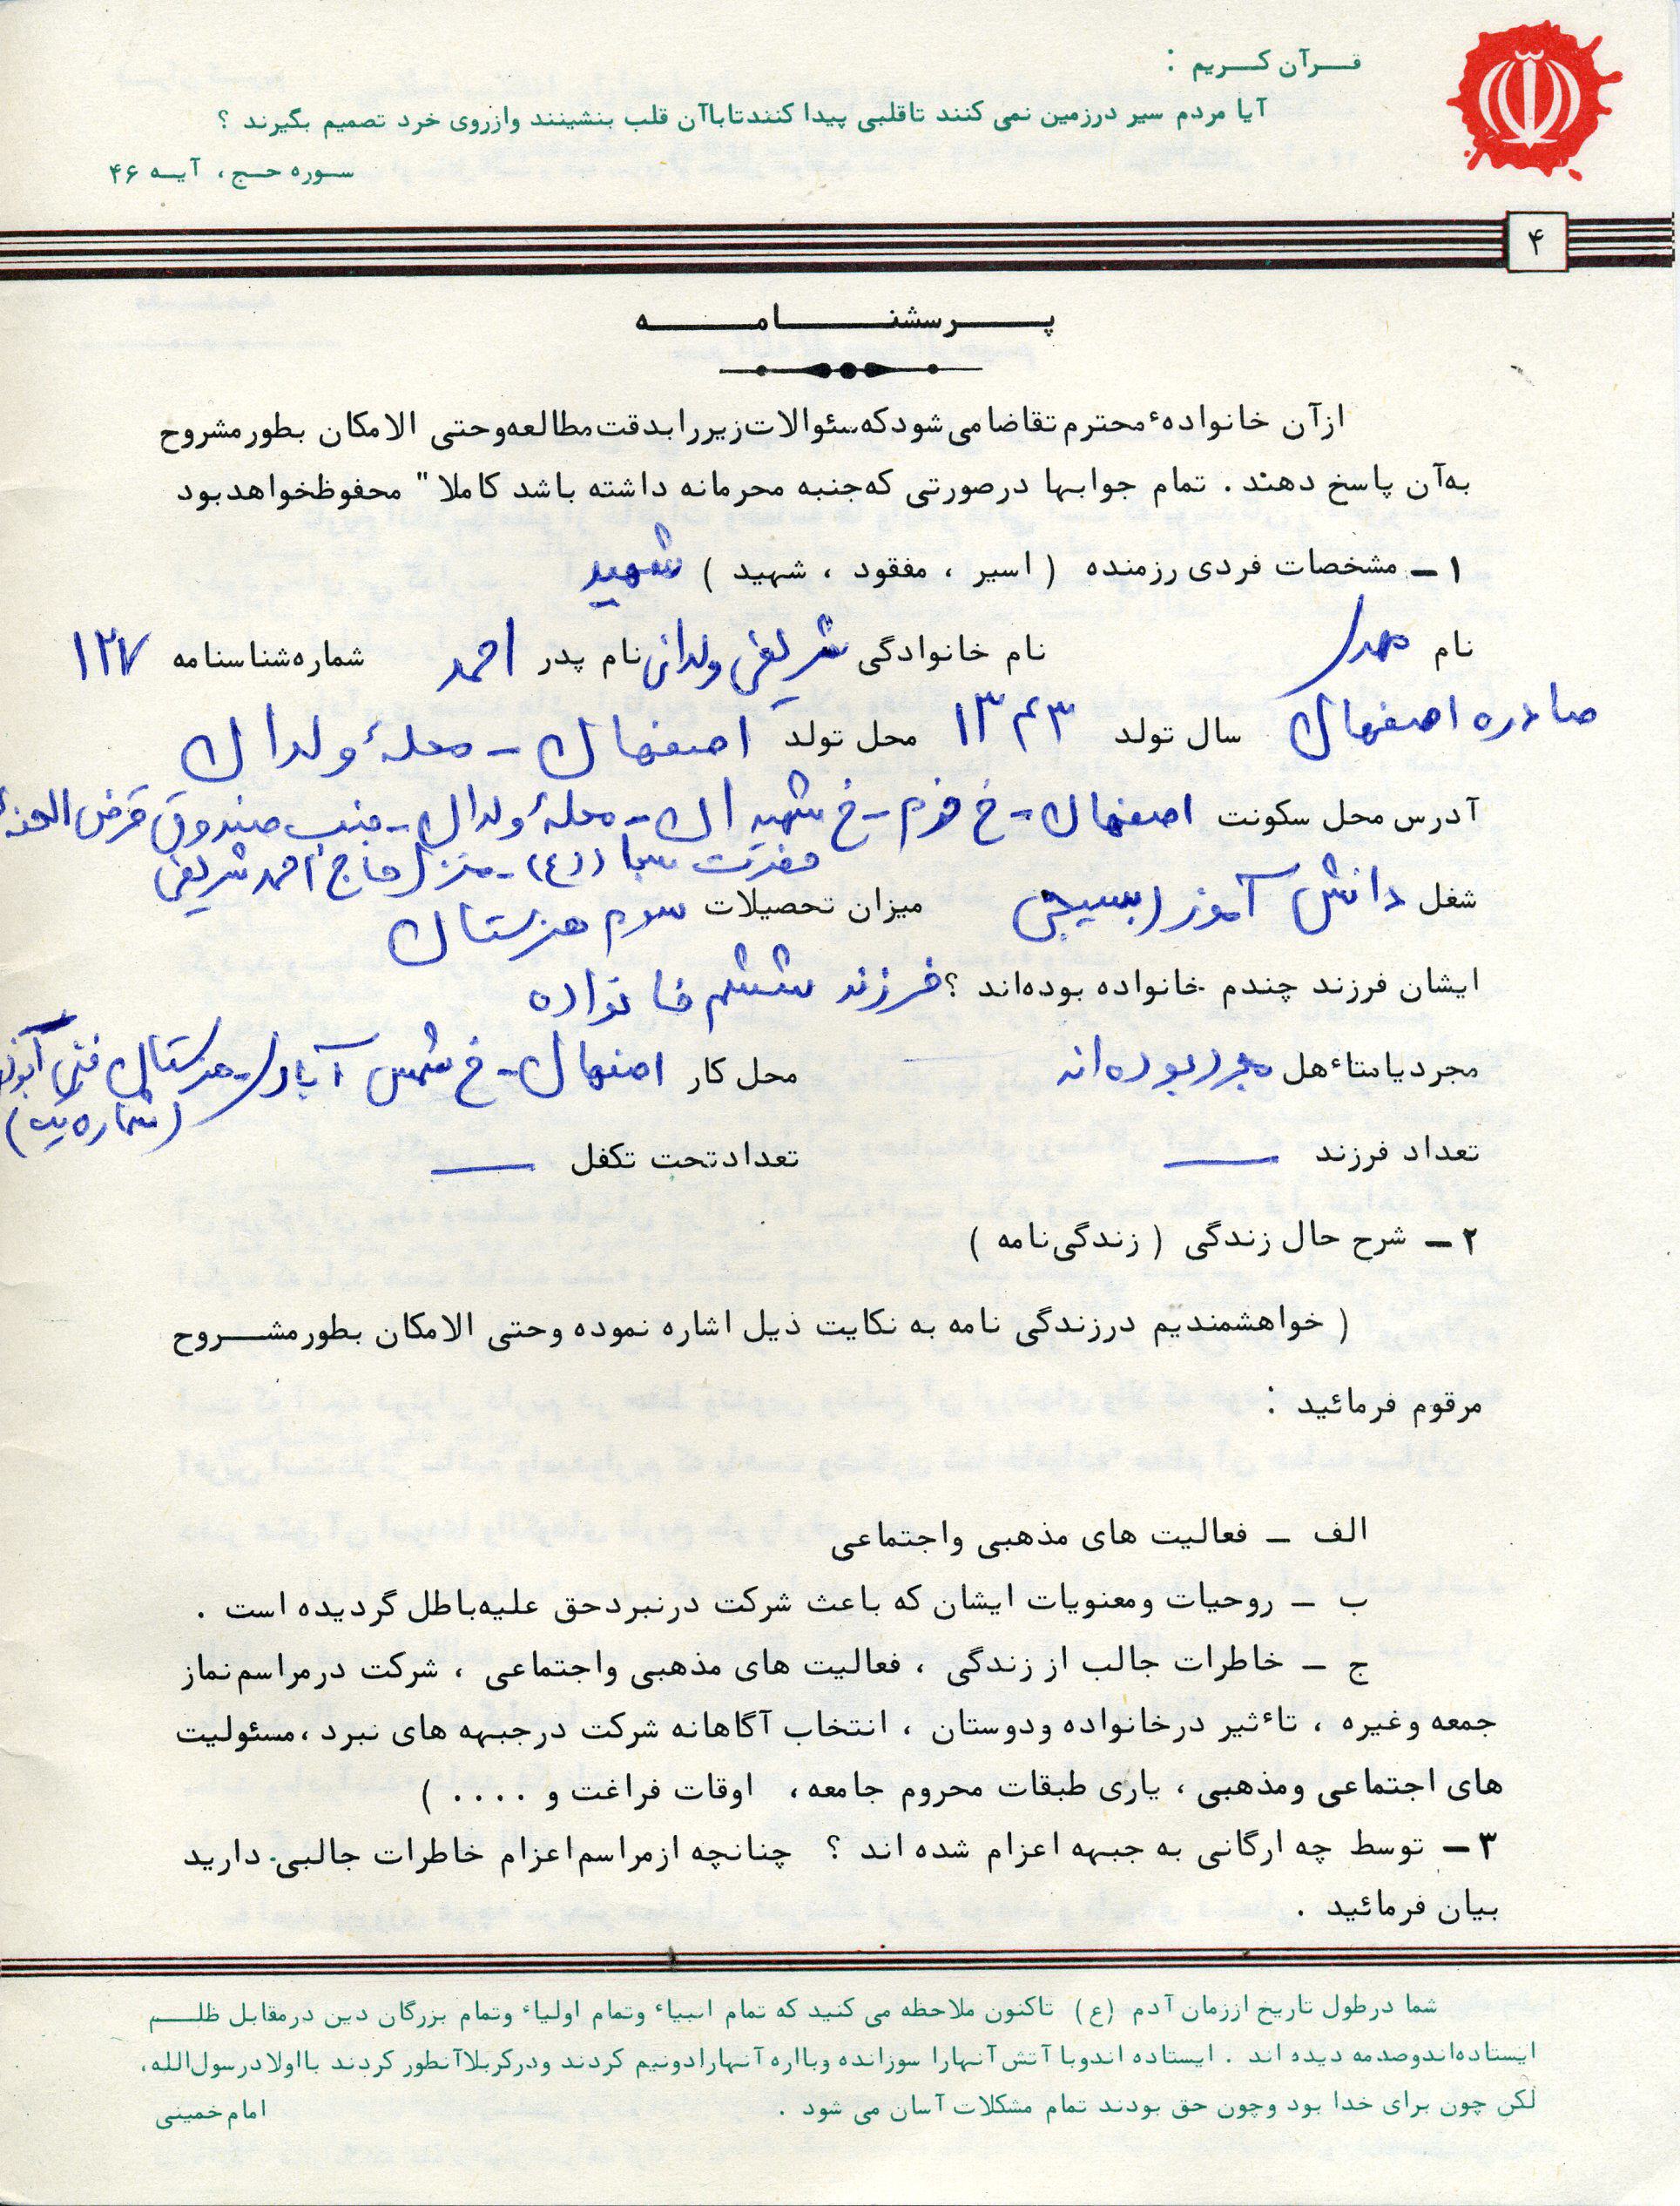 قرآن کریم :
آیا مردم سیر درزمین نمی کنند تاقلبی پیدا کنندتاباآن قلب بنشینند وازروی خرد تصمیم بگیرند ؟
سوره حج ، آیه ۴۶
۴
پرسشنامه
ازآن خانوادهٔ محترم تقاضا می شود که سئوالات زیر را بدقت مطالعه وحتی الامکان بطور مشروح
به آن پاسخ دهند . تمام جوابها درصورتی که جنبه محرمانه داشته باشد کاملا" محفوظ خواهد بود
۱ – مشخصات فردی رزمنده ( اسیر ، مفقود ، شهید ) شهید
نام مهدی نام خانوادگی شریفی ولدانی نام پدر احمد شماره شناسنامه ۱۲۷
صادره اصفهان سال تولد ۱۳۴۳ محل تولد اصفهان - محلهٔ ولدان
آدرس محل سکونت اصفهان - خ خرم - خ شهیدان - محلهٔ ولدان - جنب صندوق قرض الحسنه
حضرت سجاد (ع) - منزل حاج احمد شریفی
شغل دانش آموز (بسیجی) میزان تحصیلات سوم هنرستان
ایشان فرزند چندم خانواده بوده‌اند ؟ فرزند ششم خانواده
مجرد یا متاٴهل مجرد بوده‌اند محل کار اصفهان - خ شمس آبادی - هنرستان فنی ابوذر
(شماره یک)
تعداد فرزند — تعداد تحت تکفل —
۲ – شرح حال زندگی ( زندگی‌نامه )
( خواهشمندیم درزندگی نامه به نکایت ذیل اشاره نموده وحتی الامکان بطور مشروح
مرقوم فرمائید :
الف – فعالیت های مذهبی واجتماعی
ب – روحیات ومعنویات ایشان که باعث شرکت درنبرد حق علیه باطل گردیده است .
ج – خاطرات جالب از زندگی ، فعالیت های مذهبی واجتماعی ، شرکت درمراسم نماز
جمعه وغیره ، تاٴثیر درخانواده ودوستان ، انتخاب آگاهانه شرکت درجبهه های نبرد ، مسئولیت
های اجتماعی ومذهبی ، یاری طبقات محروم جامعه ، اوقات فراغت و .... )
۳ – توسط چه ارگانی به جبهه اعزام شده اند ؟ چنانچه ازمراسم اعزام خاطرات جالبی دارید
بیان فرمائید .
شما درطول تاریخ اززمان آدم (ع) تاکنون ملاحظه می کنید که تمام انبیاء وتمام اولیاء وتمام بزرگان دین درمقابل ظلم
ایستاده‌اند وصدمه دیده اند . ایستاده اند وبا آتش آنهارا سوزانده وبااره آنهارا دونیم کردند ودرکربلا آنطور کردند بااولاد رسول الله ،
لکن چون برای خدا بود وچون حق بودند تمام مشکلات آسان می شود . امام خمینی